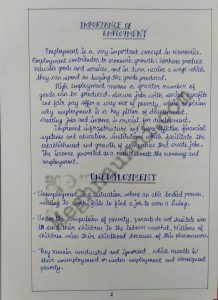 IMPORTANCE OF
EMPLOYMENT
Employment is a very important concept in economics.
Employment contributes to economic growth: Workers produce
valuable goods and services, and in turn receive a wage which
they can spend on buying the goods produced.
High employment means a greater number of
goods can be produced. Secure jobs with social benefits
and fair pay offer a way out of poverty, which explains
why employment is a key pillar of development.
Creating jobs and income is crucial for development.
Improved infrastructure and effective financial
systems and education institutions facilitate the
establishment and growth of that create jobs.
The income generated as a result boosts the economy and
employment.
UNEMPLOYMENT
Unemployment is a situation where an able bodied person,
willing to work, fails to find a job to earn a living.
Under compulsion of poverty, parents do not hesitate
to send their children to the labour market. Millions of
children miss their childhood because of this phenomenon.
They remain uneducated and ignorant, which results in
their unemployment or under employment and consequent
poverty.
2